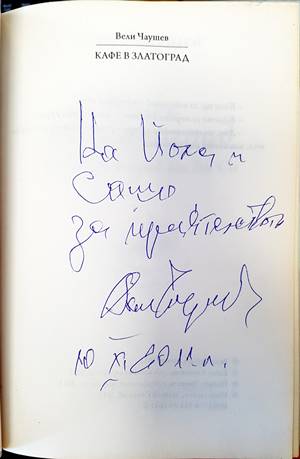 Вели Чаушев
КАФЕ В ЗЛАТОГРАД
На Йона и
Сашо
за приятелството
10 XI 2011 г.